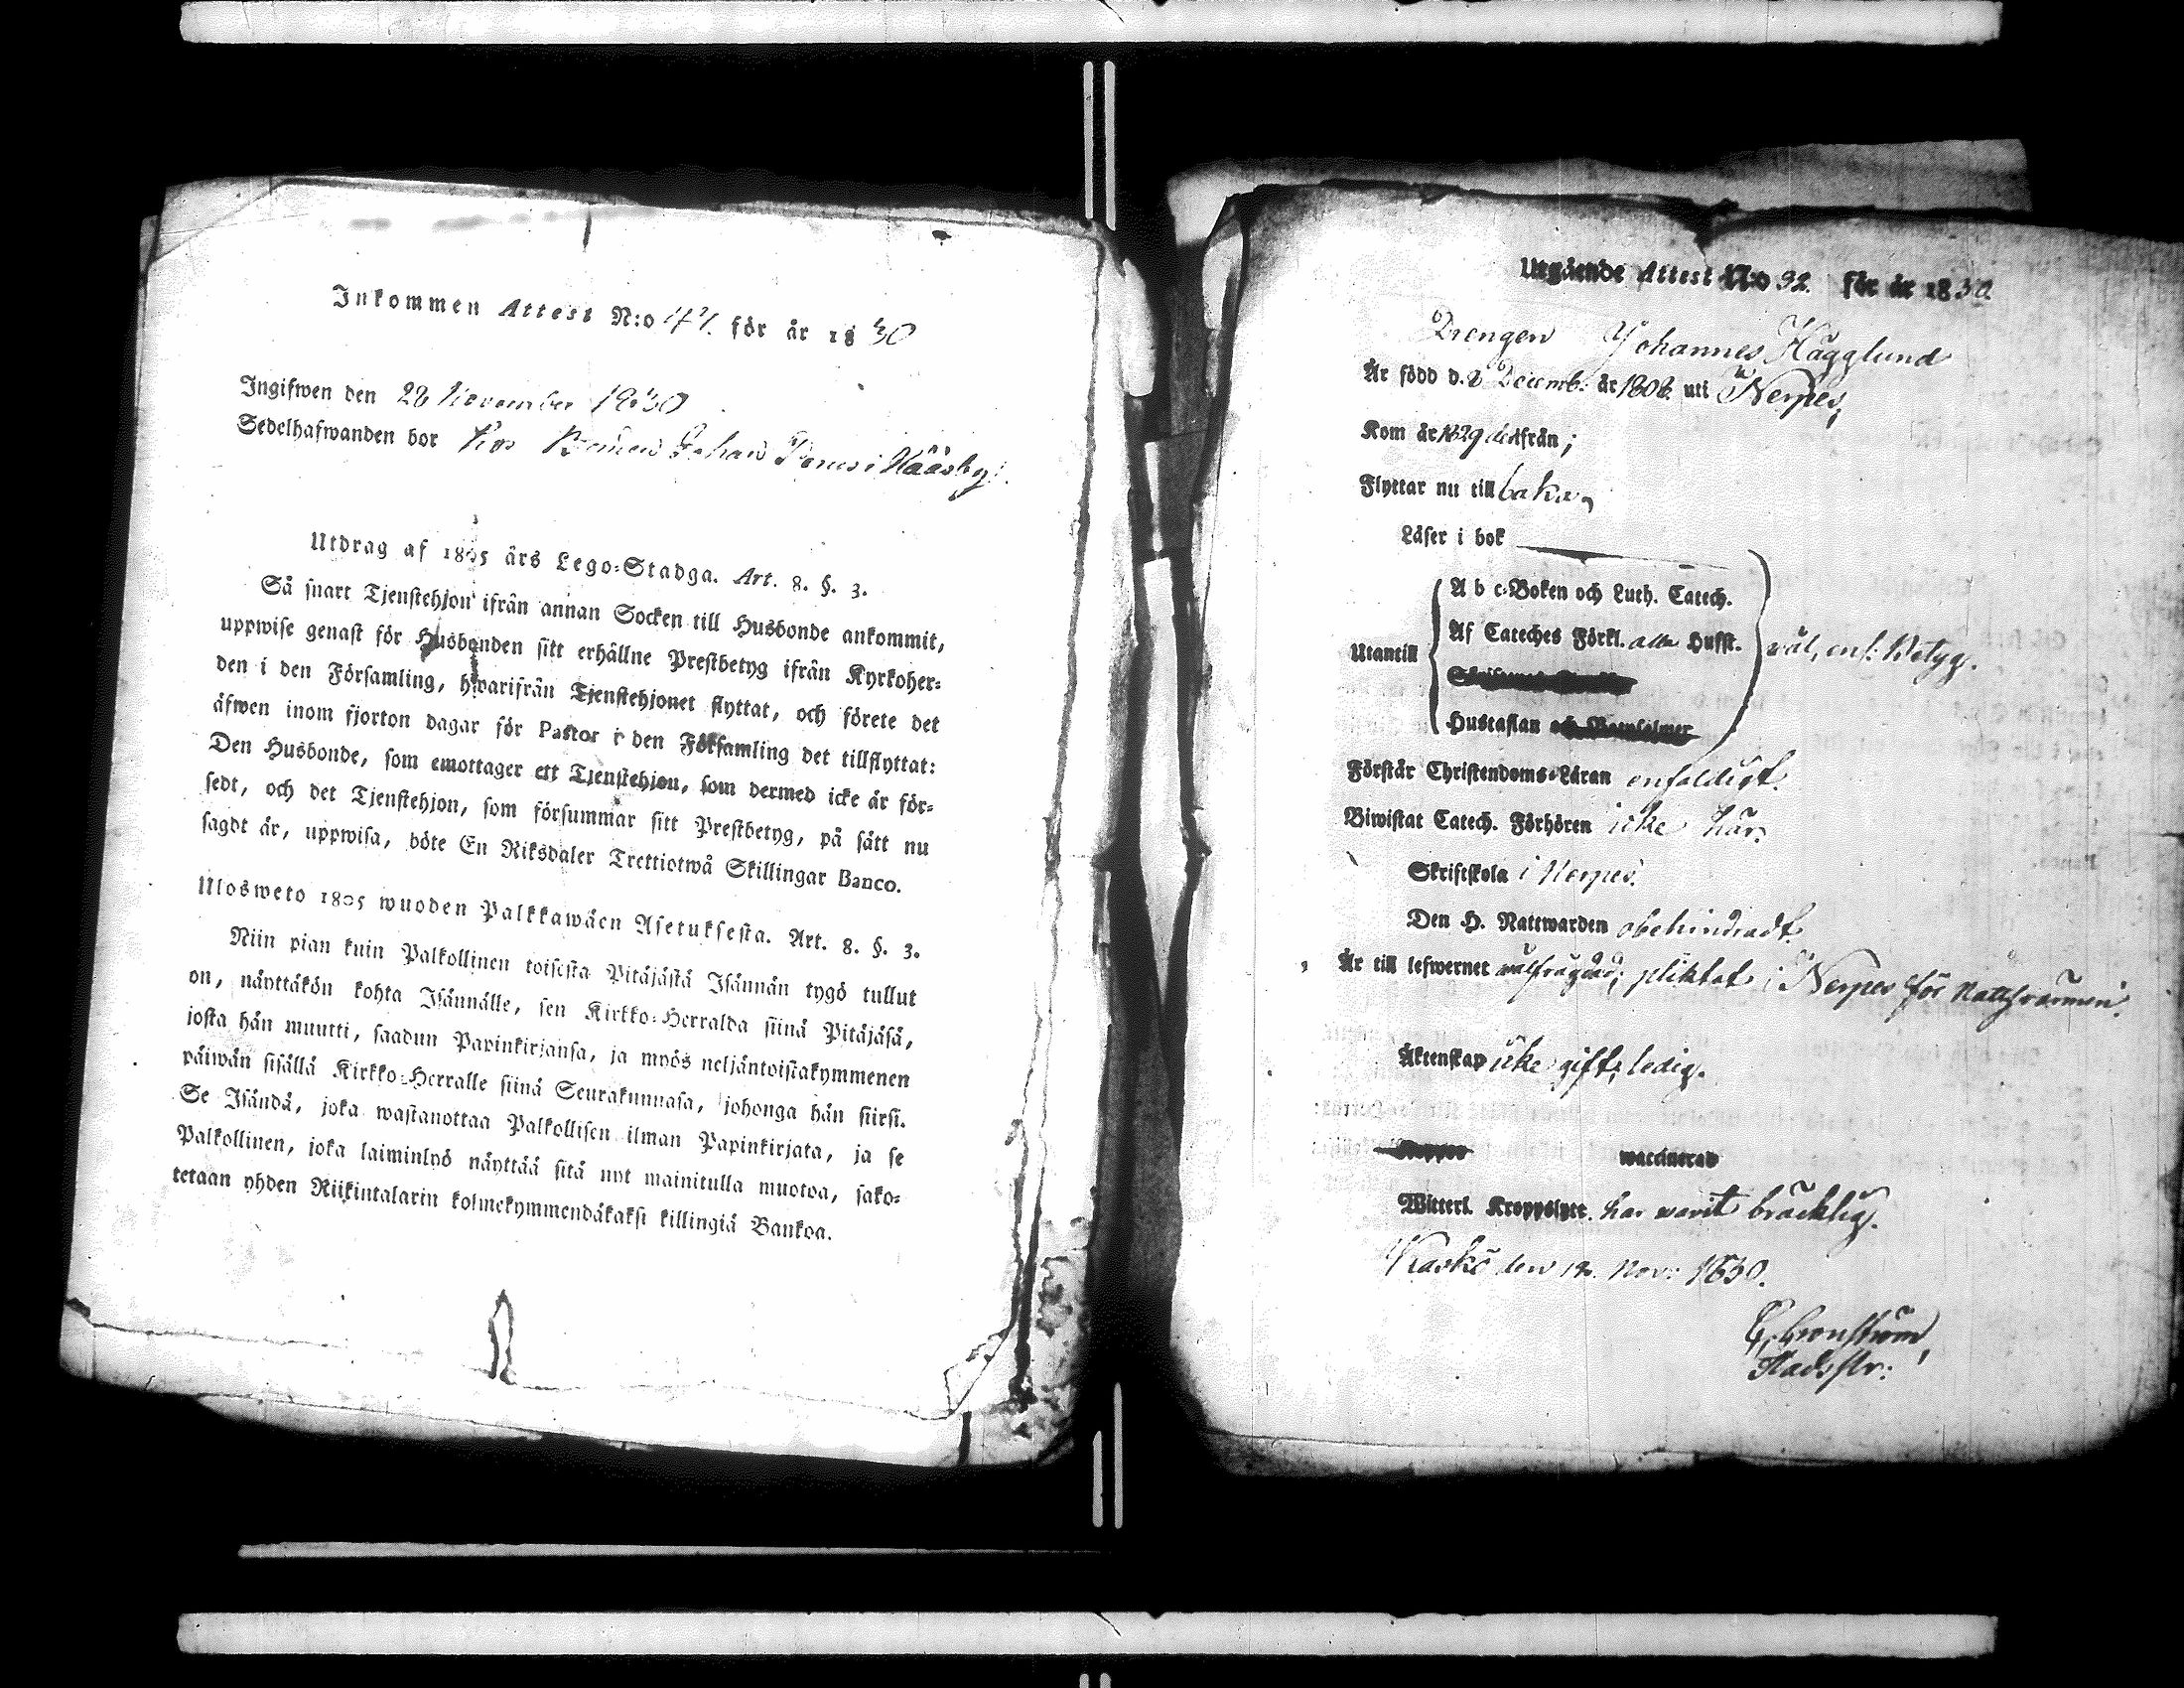 Inkommen Attest N:o 47. för år 1830
Ingifwen den 28 November 1830
Sedelhafwanden bor hos Bonden Johan i Nääsby.
Utdrag af 1805 års Lego-Stadga. Art. 8. §. 3.
Så snart Tjenstehjon ifrån annan Socken till Husbonde ankommit,
uppwise genast för Husbonden sitt erhållne Prestbetyg ifrån Kyrkoher-
den i den Församling, hwarifrån Tjenstehjonet flyttat, och förete det
äfwen inom fjorton dagar för Pastor i den Församling det tillflyttat:
Den Husbonde, som emottager ett Tjenstehjon, som dermed icke är för-
sedt, och det Tjenstehjon, som försummar sitt Prestbetyg, på sätt nu
sagdt är, uppwisa, böte En Riksdaler Trettiotwå Skillingar Banco.
Ulosweto 1805 wuoden Palkkawäen Asetuksesta. Art. 8. §. 3.
Niin pian kuin Palkollinen toisesta Pitäjästä Isännän tygö tullut
on, näyttäkön kohta Isännälle, sen Kirkko-Herralda siinä Pitäjäsä,
josta hän muutti, saadun Papinkirjansa, ja myös neljäntoistakymmenen
päiwän sisällä Kirkko-Herralle siinä Seurakunnasa, johonga hän siirsi.
Se Isändä, joka wastanottaa Palkollisen ilman Papinkirjata, ja se
Palkollinen, joka laiminlyö näyttää sitä nyt mainitulla muotoa, sako-
tetaan yhden Riikintalarin kolmekymmendäkaksi killingiä Bankoa.
Utgående Attest N:o 92. för år 1830
Drengen Johannes Hägglund
Är född d. 2 Decemb. år 1808 uti Nerpes,
Kom år 1829 ifrån;
Flyttar nu till baka,
Läser i bok
A b c-Boken och Luth. Catech.
Af Cateches Förkl. alla Hufst.
Utantill väl, enl. Betyg.
Hustaflan och
Förstår Christendoms-Läran enfaldigt.
Biwistat Catech. Förhören icke här.
Skriftskola i Nerpes.
Den H. Nattwarden obehindradt.
Är till lefwernet välfrägdad; pliktat i Nerpes för nattsvärmeri.
Äktenskap icke gift, ledig.
waccinerad
Witterl. Kroppslyte. har warit bräcklig.
Kaskö den 12. Nov: 1830.